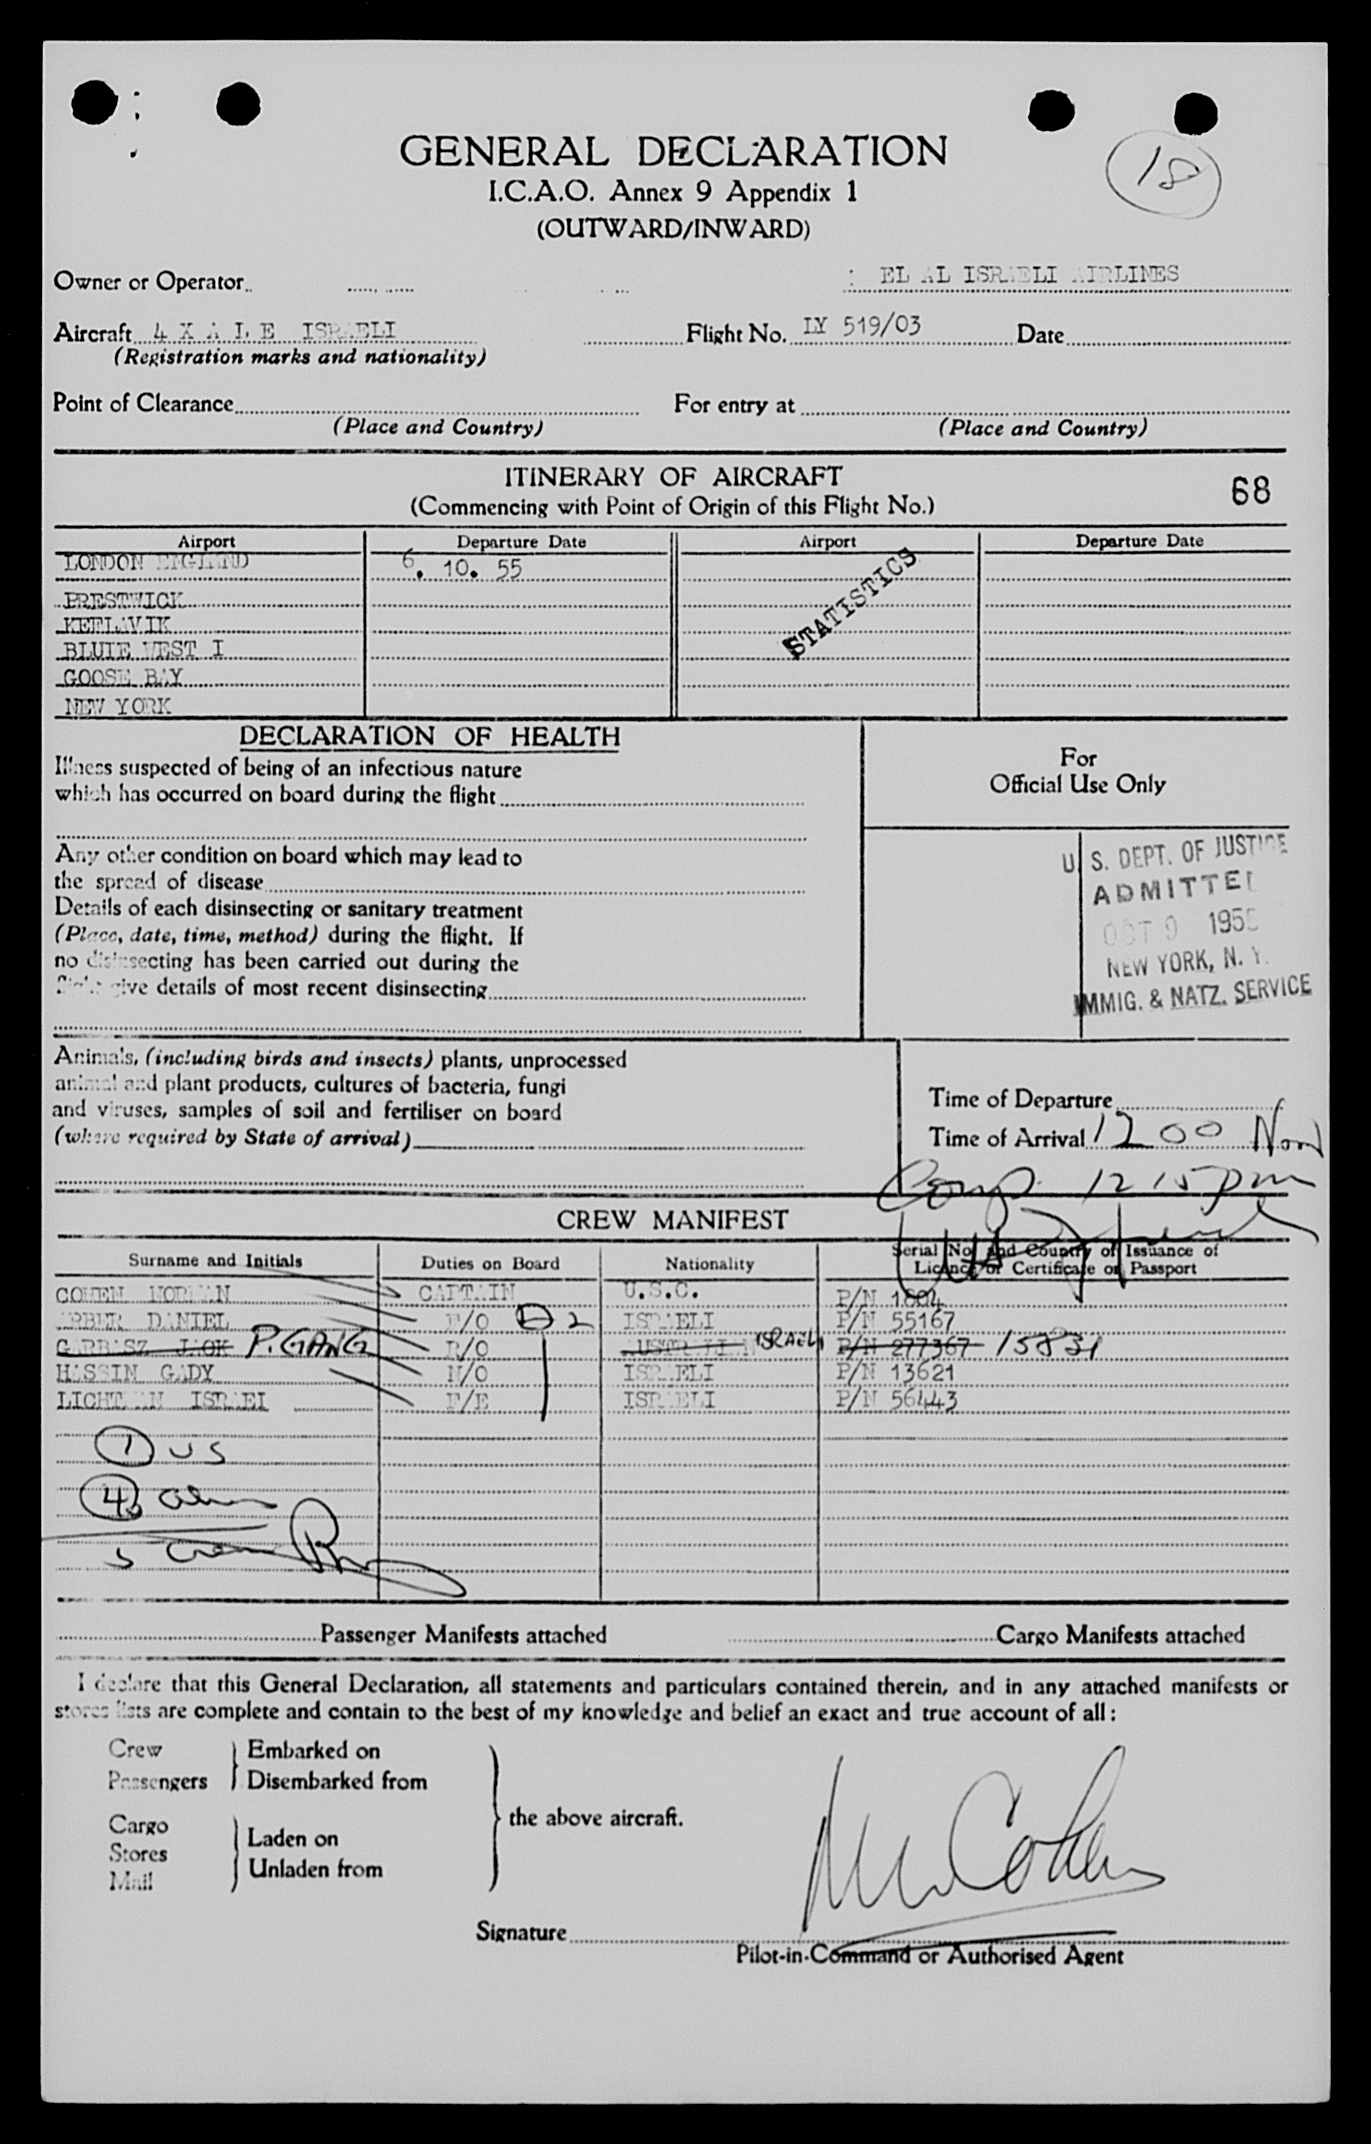 18
GENERAL DECLARATION
I.C.A.O. Annex 9 Appendix 1
(OUTWARD/INWARD)
Owner or Operator : EL AL ISRAELI AIRLINES
Aircraft 4 X A L E ISRAELI Flight No. LY 519/03 Date
(Registration marks and nationality)
Point of Clearance For entry at
(Place and Country) (Place and Country)
ITINERARY OF AIRCRAFT
(Commencing with Point of Origin of this Flight No.) 68
Airport Departure Date Airport Departure Date
LONDON ENGLAND 6. 10. 55
STATISTICS
PRESTWICK
KEFLAVIK
BLUIE WEST I
GOOSE BAY
NEW YORK
DECLARATION OF HEALTH
Illness suspected of being of an infectious nature
which has occurred on board during the flight
For
Official Use Only
Any other condition on board which may lead to
the spread of disease
Details of each disinsecting or sanitary treatment
(Place, date, time, method) during the flight. If
no disinsecting has been carried out during the
flight give details of most recent disinsecting
U. S. DEPT. OF JUSTICE
ADMITTED
OCT 9 1955
NEW YORK, N. Y.
IMMIG. & NATZ. SERVICE
Animals, (including birds and insects) plants, unprocessed
animal and plant products, cultures of bacteria, fungi
and viruses, samples of soil and fertiliser on board
(where required by State of arrival)
Time of Departure
Time of Arrival 1200 Noon
Comp. 12 15 pm
CREW MANIFEST
Surname and Initials Duties on Board Nationality Serial No. and Country of Issuance of
Licence or Certificate or Passport
COHEN NORMAN CAPTAIN U.S.C. P/N 1804
DANIEL F/O D 2 ISRAELI P/N 55167
GARBASZ JACK P. GANG R/O AUSTRALIAN ISRAELI P/N 277367 15831
HASSIN GADY N/O ISRAELI P/N 13621
LICHTMAN ISRAEL F/E ISRAELI P/N 56443
1 US
4
5 Crew
Passenger Manifests attached Cargo Manifests attached
I declare that this General Declaration, all statements and particulars contained therein, and in any attached manifests or
stores lists are complete and contain to the best of my knowledge and belief an exact and true account of all:
Crew Embarked on
Passengers Disembarked from
the above aircraft.
Cargo Laden on
Stores
Mail Unladen from
M Cohen
Signature
Pilot-in-Command or Authorised Agent